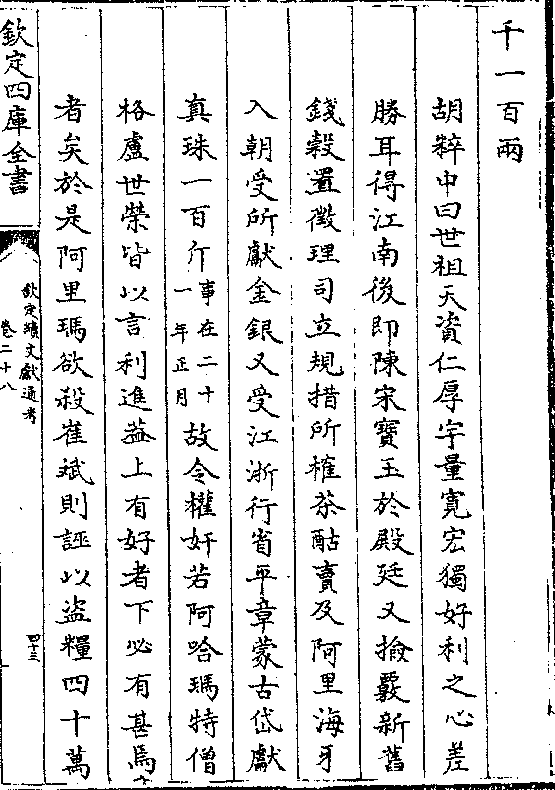 千一百兩
胡粹中曰世祖天資仁厚宇量寛宏獨好利之心差
勝耳得江南後即陳宋寶玉於殿廷又撿覈新舊
錢榖置徴理司立規措所榷茶酤賣及阿里海牙
入朝受所獻金銀又受江浙行省平章蒙古岱獻
真珠一百斤事在二十一年正月故令權奸若阿哈瑪特僧
格盧世榮皆以言利進葢上有好者下必有甚焉
者矣於是阿里瑪欲殺崔斌則誣以盗糧四十萬
欽定四庫全書
欽定續文獻通考
卷二十八
四十三